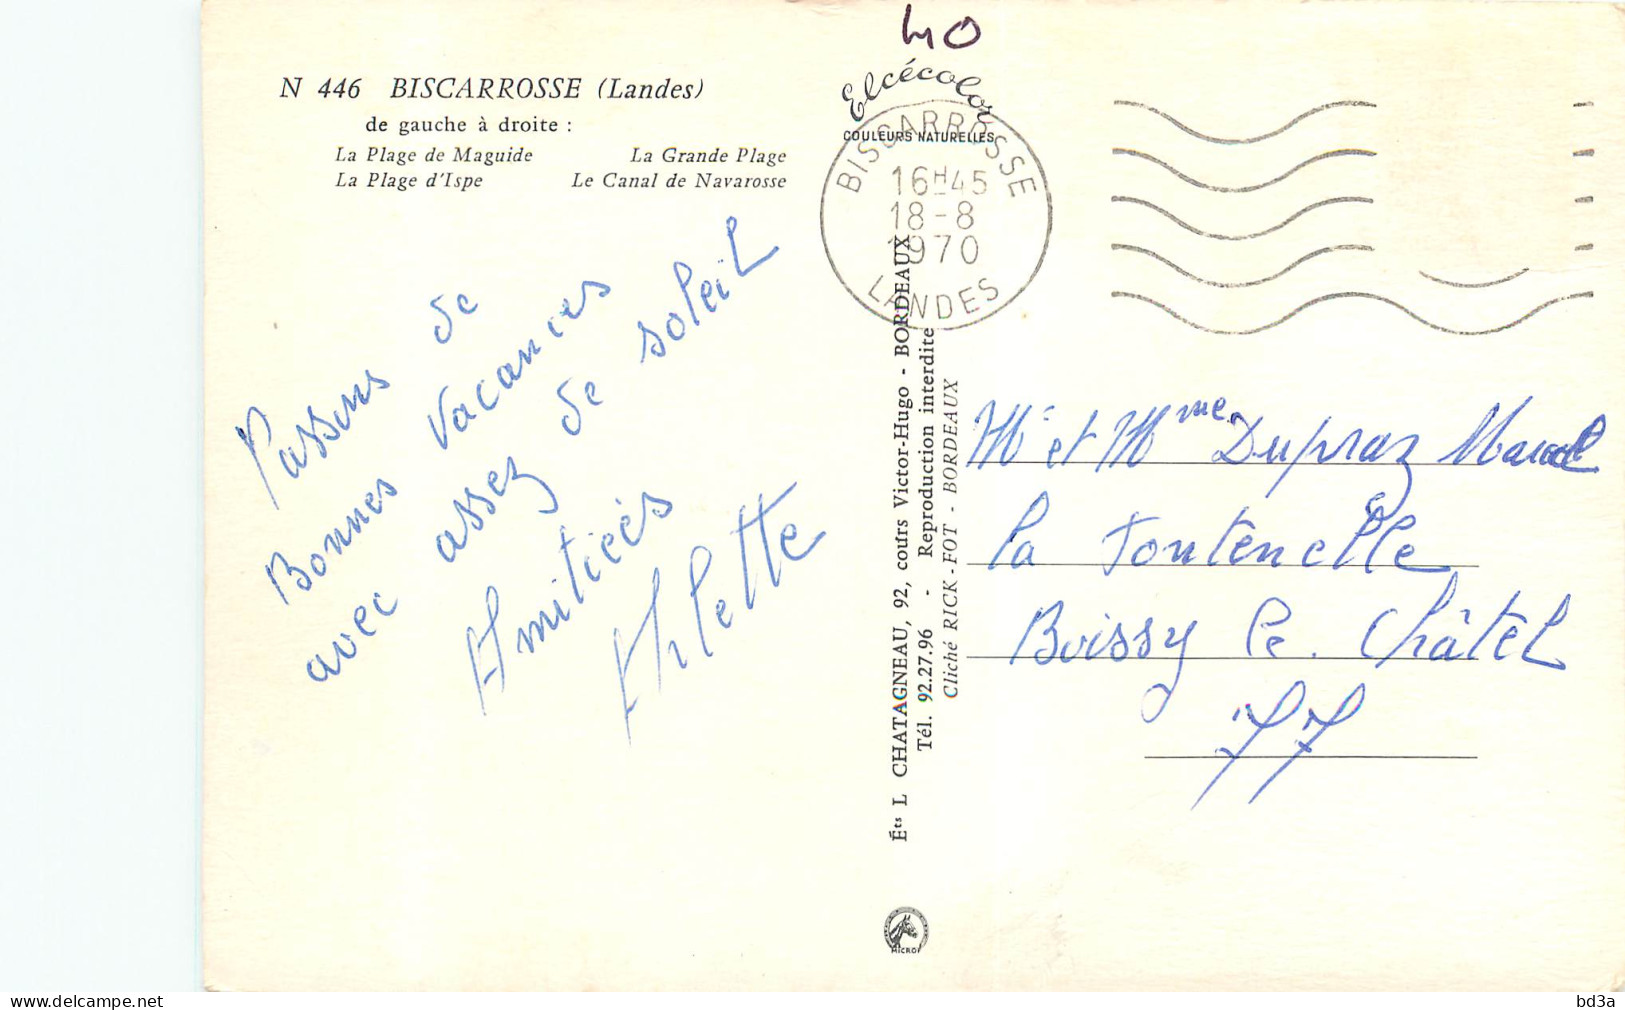 40
N 446 BISCARROSSE (Landes)
de gauche à droite :
La Plage de Maguide La Grande Plage
La Plage d'Ispe Le Canal de Navarosse
Elcécolor
COULEURS NATURELLES
BISCARROSSE
16H45
18-8
1970
LANDES
Passons de
Bonnes vacances
avec assez de soleil
Amitiées
Arlette
Éts L CHATAGNEAU, 92, cours Victor-Hugo - BORDEAUX
Tél. 92.27.96 - Reproduction interdite
Cliché RICK-FOT - BORDEAUX
Mr et Mme Dupraz Marcel
la Fontenelle
Boissy le. Châtel
77
MICRO
www.delcampe.net
bd3a